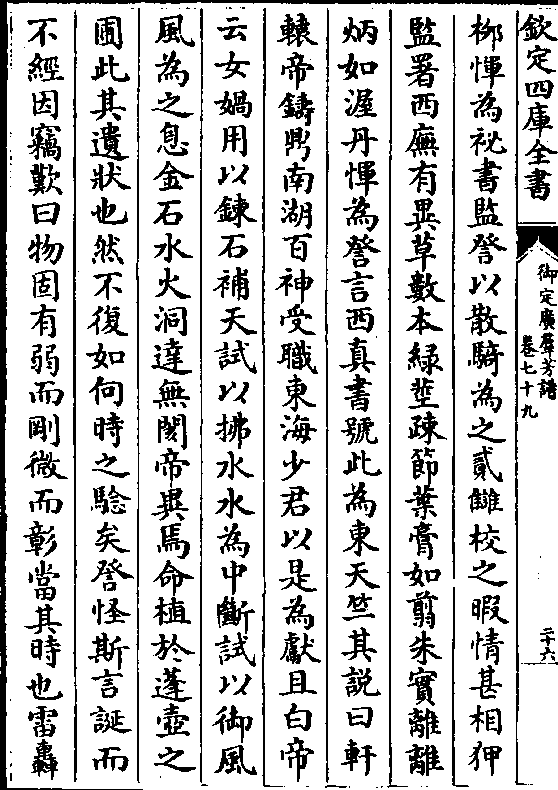 欽定四庫全書
御定廣羣芳譜
卷七十九
二十六
柳惲為祕書監詧以散騎為之貳讎校之暇情甚相狎
監署西廡有異草數本綠莖疎節葉膏如翦朱實離離
炳如渥丹惲為詧言西真書號此為東天竺其說曰軒
轅帝鑄鼎南湖百神受職東海少君以是為獻且白帝
云女媧用以鍊石補天試以拂水水為中斷試以御風
風為之息金石水火洞達無閡帝異焉命植於蓬壺之
圃此其遺狀也然不復如何時之驗矣詧怪斯言誕而
不經因竊歎曰物固有弱而剛微而彰當其時也雷轟